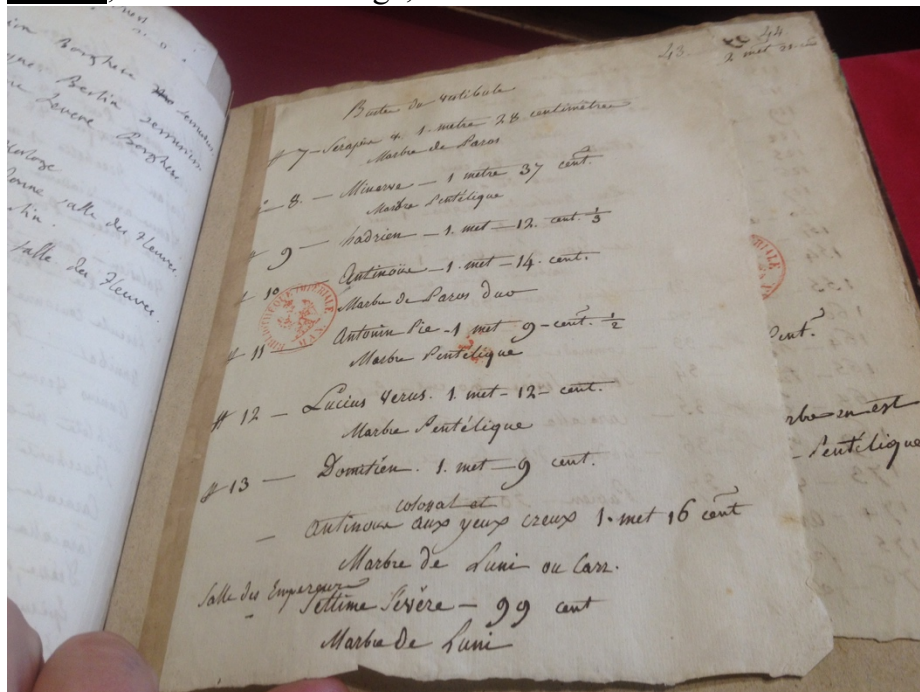 Borghese
Bertin
Borghese
salle du fleuve.
salle du fleuve.
43. 44
Buste du vestibule
# 7 - Serapis 1. metre 28 centimetres
Marbre de Paros
8. - Minerve - 1 metre 37 cent.
Marbre Pentélique
# 9 - hadrien - 1. met - 12. cent. 1/3
10 - Antinoüs - 1. met - 14. cent.
Marbre de Paros duo
BIBLIOTHÈQUE IMPÉRIALE MAN.
# 11 - Antonin Pie - 1 met 9 - cent. 1/2
Marbre Pentélique
# 12 - Lucius Verus. 1. met - 12 - cent.
Marbre Pentélique
# 13 - Domitien. 1. met - 9 cent.
colossal et
- antinoue aux yeux creux 1. met 16 cent
Marbre de Luni ou Carr.
Salle des Empereurs
- Settime Sévère - 99 cent
Marbre de Luni
Pent.
est
- Pentélique